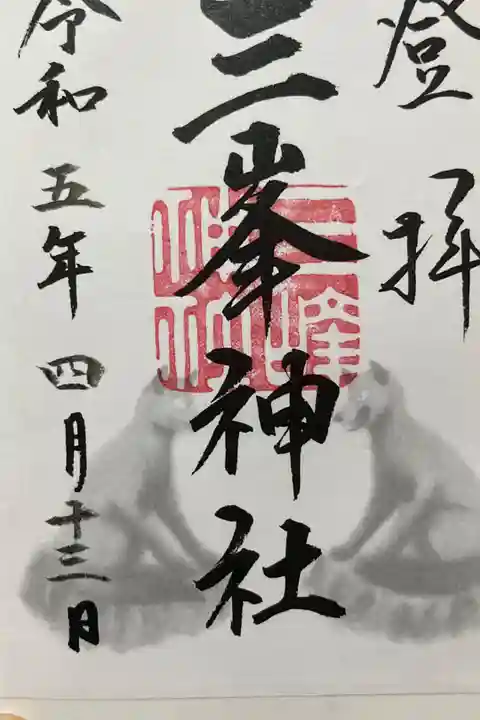 登拝
三峯神社
令和五年四月十三日
三峰神社